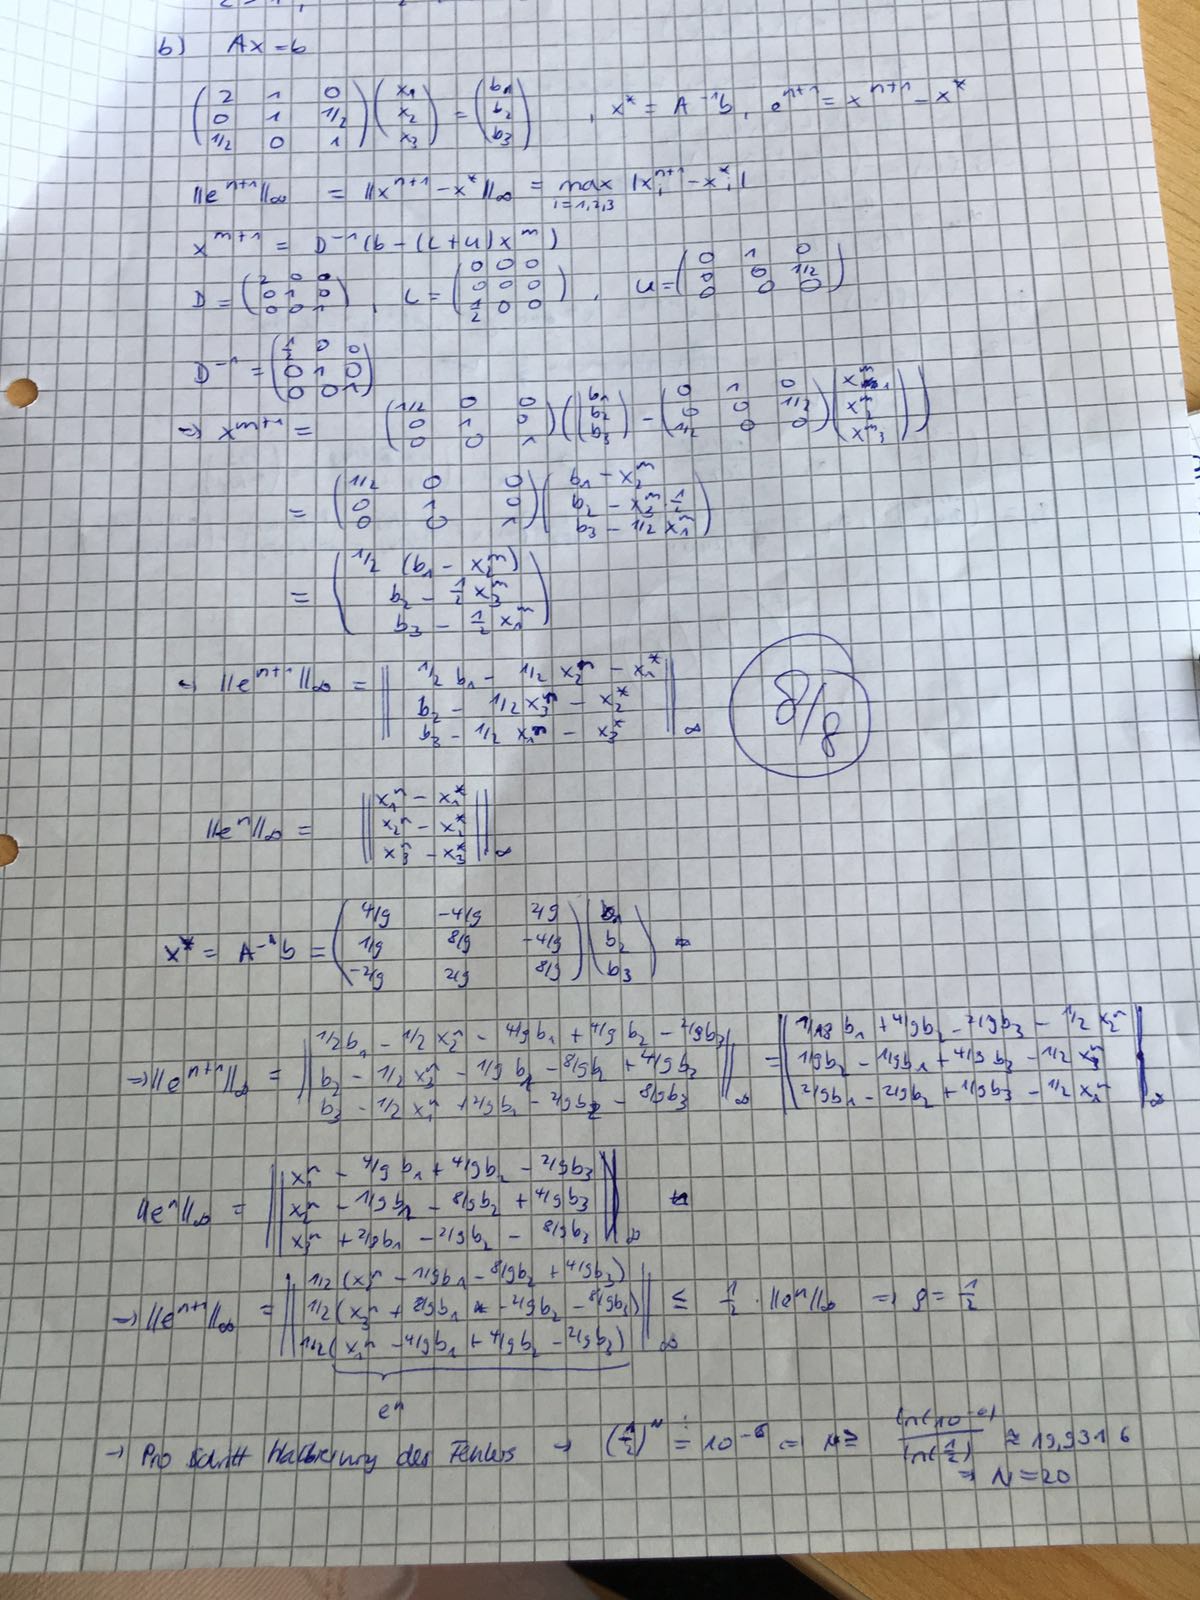 b) Ax = b
( 2 1 0 ; 0 1 1/2 ; 1/2 0 1 ) ( x1 ; x2 ; x3 ) = ( b1 ; b2 ; b3 ) , x* = A^-1 b, e^n+1 = x^n+1 - x*
||e^n+1||∞ = ||x^n+1 - x*||∞ = max i=1,2,3 |xi^n+1 - xi*|
x^m+1 = D^-1 (b - (L+U) x^m)
D = ( 2 0 0 ; 0 1 0 ; 0 0 1 ) , L = ( 0 0 0 ; 0 0 0 ; 1/2 0 0 ) , U = ( 0 1 0 ; 0 0 1/2 ; 0 0 0 )
D^-1 = ( 1/2 0 0 ; 0 1 0 ; 0 0 1 )
→ x^m+1 = ( 1/2 0 0 ; 0 1 0 ; 0 0 1 ) ( ( b1 ; b2 ; b3 ) - ( 0 1 0 ; 0 0 1/2 ; 1/2 0 0 ) ( x1^m ; x2^m ; x3^m ) )
= ( 1/2 0 0 ; 0 1 0 ; 0 0 1 ) ( b1 - x2^m ; b2 - x3^m 1/2 ; b3 - 1/2 x1^m )
= ( 1/2 (b1 - x2^m) ; b2 - 1/2 x3^m ; b3 - 1/2 x1^m )
→ ||e^n+1||∞ = || 1/2 b1 - 1/2 x2^n - x1* ; b2 - 1/2 x3^n - x2* ; b3 - 1/2 x1^n - x3* ||∞
8/8
||e^n||∞ = || x1^n - x1* ; x2^n - x2* ; x3^n - x3* ||∞
x* = A^-1 b = ( 4/9 -4/9 2/9 ; 1/9 8/9 -4/9 ; -2/9 2/9 8/9 ) ( b1 ; b2 ; b3 )
⇒ ||e^n+1||∞ = || 1/2 b1 - 1/2 x2^n - 4/9 b1 + 4/9 b2 - 2/9 b3 ; b2 - 1/2 x3^n - 1/9 b1 - 8/9 b2 + 4/9 b3 ; b3 - 1/2 x1^n + 2/9 b1 - 2/9 b2 - 8/9 b3 ||∞ = || 1/18 b1 + 4/9 b2 - 2/9 b3 - 1/2 x2^n ; 1/9 b2 - 1/9 b1 + 4/9 b3 - 1/2 x3^n ; 2/9 b1 - 2/9 b2 + 1/9 b3 - 1/2 x1^n ||∞
||e^n||∞ = || x1^n - 4/9 b1 + 4/9 b2 - 2/9 b3 ; x2^n - 1/9 b1 - 8/9 b2 + 4/9 b3 ; x3^n + 2/9 b1 - 2/9 b2 - 8/9 b3 ||∞
→ ||e^n+1||∞ = || 1/2 (x2^n - 1/9 b1 - 8/9 b2 + 4/9 b3) ; 1/2 (x3^n + 8/9 b1 - 2/9 b2 - 8/9 b3) ; 1/2 (x1^n - 4/9 b1 + 4/9 b2 - 2/9 b3) ||∞ ≤ 1/2 · ||e^n||∞ ⇒ ρ = 1/2
e^n
→ Pro Schritt Halbierung des Fehlers → (1/2)^N = 10^-6 ⇒ N ≥ ln(10^-6) / ln(1/2) ≈ 19,9316
⇒ N = 20